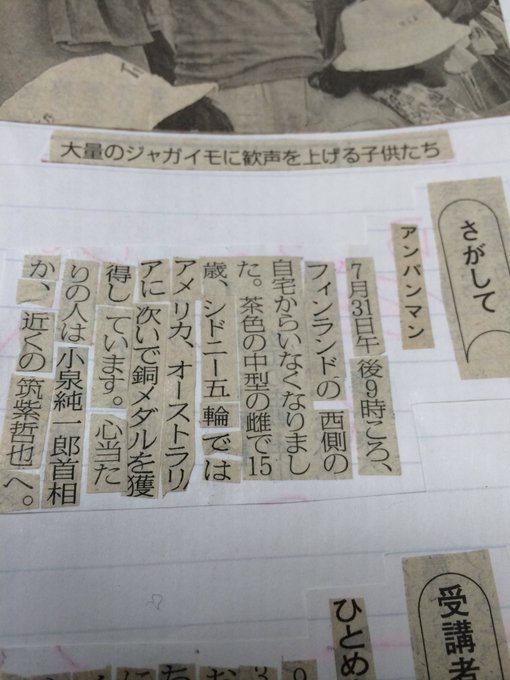 大量のジャガイモに歓声を上げる子供たち
さがして
アンパンマン
7月31日午後9時ころ、
フィンランドの西側の
自宅からいなくなりまし
た。茶色の中型の雌で15
歳、シドニー五輪では
アメリカ、オーストラリ
アに次いで銅メダルを獲
得しています。心当た
りの人は小泉純一郎首相
か、近くの筑紫哲也へ。
受講者
ひとめ